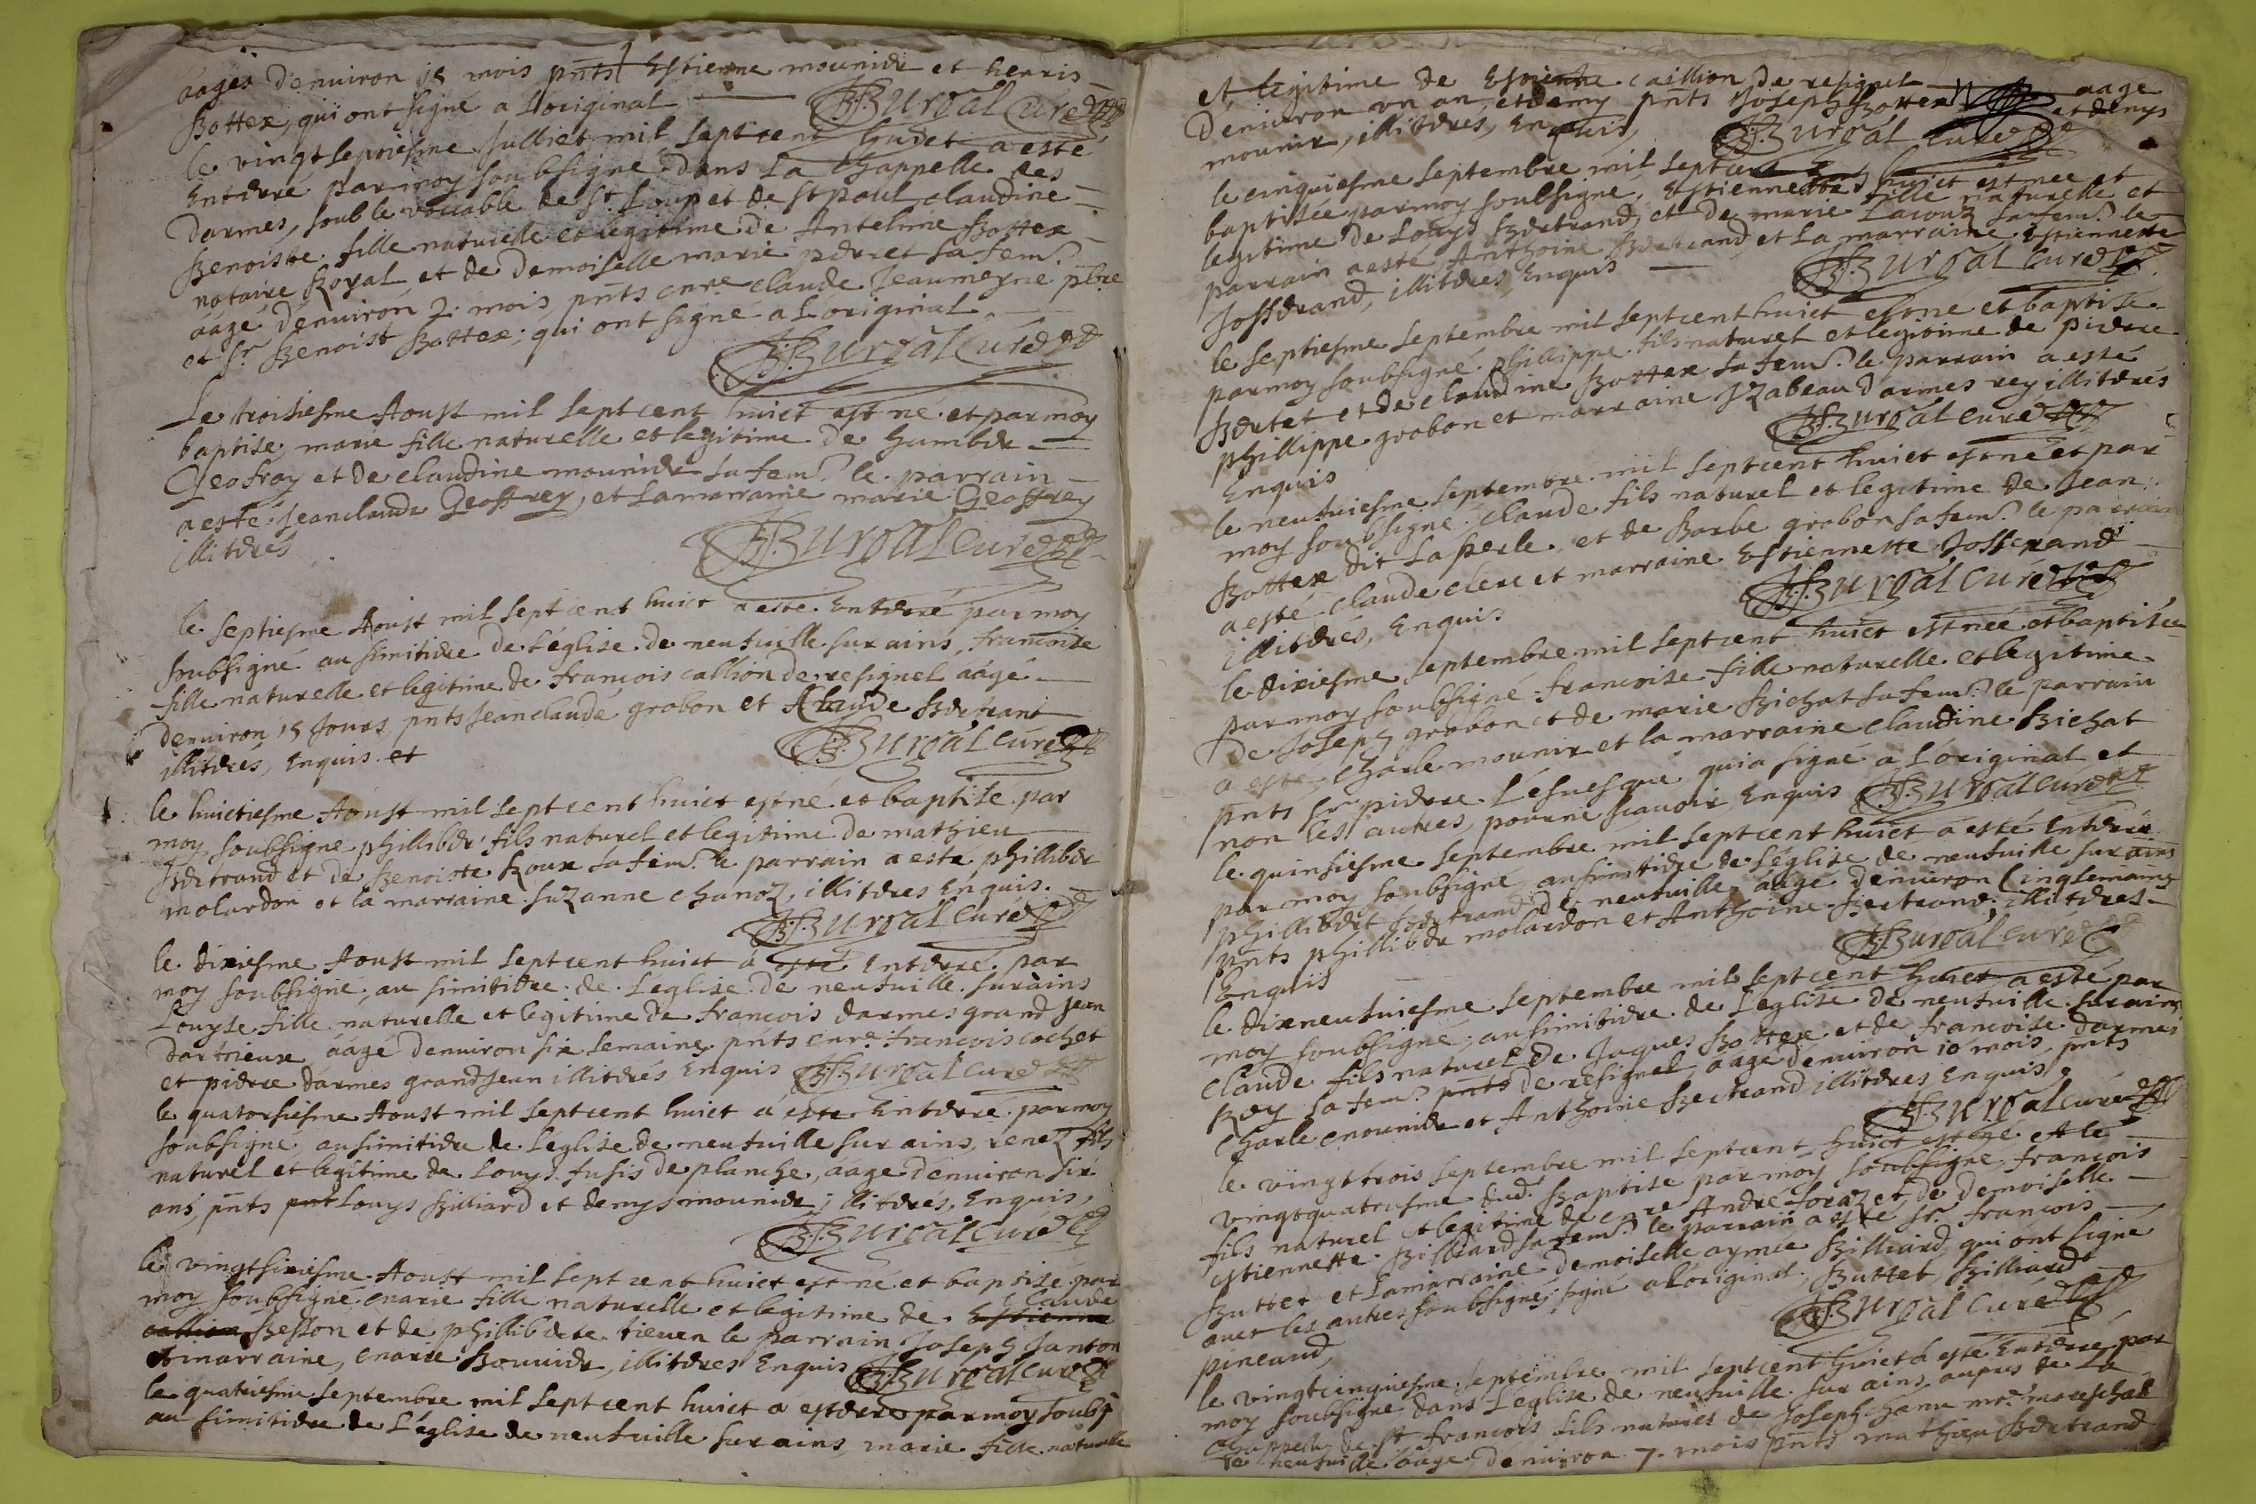 aagée d'enuiron 18 mois pnts Estienne mounier et henris
Bottex, qui ont signé a L'original B:f: Burgal Curé
le vingt septiesme Julliet mil sept cent huict a esté
Enterré par moy soubsigné dans La Chappelle des
darmes, soub le vocable de St. Loup et de St paul claudine
Benoiste fille naturelle et legitime de Antelme Bottex
notaire Royal, et de Demoiselle marie perret sa fem.
aagé d'enuiron 2. mois, pnts claude Jeaumeyne pbre
et Sr. Benoist Bottex; qui ont signé a L'original
B:f: Burgal Curé
Le troisiesme Aoust mil sept cent huict est né et par moy
baptisé, marie fille naturelle et legitime de humber
Geofray et de claudine mounier sa fem. le parrain
a esté Jean claude Geoffrey, et La marraine marie Geoffrey
illiterés
B:f: Burgal Curé
le septiesme Aoust mil sept cent huict a esté Enterré par moy
soubsigné au simitiere de L'église de neufuille sur ains, francoise
fille naturelle et legitime de francois callion de resignel aagé
d'enuiron 15 Jours, pnts Jean claude grobon et Claude Bertrant
illiterés, Enquis et B:f: Burgal Curé
le huictiesme Aoust mil sept cent huict est né et baptisé par
moy soubsigné phillibér fils naturel et legitime de mathieu
Bertrand et de Benoiste Roux sa fem. le parrain a esté phillibér
molardon et la marraine Suzanne chanoz, illiteres Enquis.
B:f: Burgal Curé
le dixiesme Aoust mil sept cent huict a esté Enterré par
moy soubsigné, au simitiere de L'eglise de neufuille sur ains
Louyse fille naturelle et legitime de francois darmes grand Jean
aagé d'enuiron six semaine, pnts francois cochet
et pierre darmes grand Jean illiterés Enquis B:f: Burgal Curé
le quatorsiesme Aoust mil sept cent huict a esté Enterré par moy
soubsigné au simitiere de L'église de neufuille sur ains, renez fils
naturel et legitime de Louys fusis de planche, aage d'enuiron six
ans, pnts pnt Louys Billiard et denys mounier; illiterés, Enquis,
B:f: Burgal Curé
le vingt sixiesme Aoust mil sept cent huict est né et baptisé par
moy soubsigné marie fille naturelle et legitime de Estienne Claude
callion Besson et de phillibérte tieuen le parrain Joseph Janton
et marraine, marie Bouuier, illiteres Enquis B:f: Burgal Curé
le quatriesme septembre mil sept cent huict a esterré par moy soub
au simitiere de L'église de neufuille sur ains, marie fille naturelle
et legitime de Estienne caillion de resignel aage
d'enuiron un an, et demy pnts Joseph Bottex et denys
mounier, illiteres, Enquis, B:f: Burgal Curé
le cinquiesme septembre mil sept cent huict est née et
baptisée par moy soubsigné, Estiennette fille naturelle et
legitime de Louys Bertrand, et de marie Lacouz sa fem. le
parrain a esté Anthoine Bertrand, et La marraine Estiennette
Josserand, illiteres, Enquis B:f: Burgal Curé
le septiesme septembre mil sept cent huict est né et baptisé
par moy soubsigné phillippe fils naturel et legitime de pierre
Bertet et de claudine Bottex sa fem. le parrain a esté
phillippe grobon et marraine Izabeau darmes rey illiterés
Enquis B:f: Burgal Curé
le neufuiesme septembre mil sept cent huict est né et par
moy soubsigné claude fils naturel et legitime de Jean
Bottex dit La perle, et de Barbe grobon sa fem. le parrain
a esté claude clerc et marraine Estiennette Josserand
illiterés, Enquis B:f: Burgal Curé
le dixiesme septembre mil sept cent huict est née et baptisée
par moy soubsigné francoise fille naturelle et legitime
de Joseph grobon et de marie Bichat sa fem. le parrain
a esté, charle mounier et la marraine claudine Bichat
pnts Sr. pierre L'esuesque qui a signé a L'original et
non les autres, pour ne scauoir Enquis B:f: Burgal Curé
le quinsiesme septembre mil sept cent huict a esté Enterré
par moy soubsigné au simitiere de L'église de neufuille sur ains
phillibért Bertrand de neufuille, aagé d'enuiron cinq semaines
pnts phillibér molardon et Anthoine Bertrand illiterés
Enquis B:f: Burgal Curé
le dixneufuiesme septembre mil sept cent huict a esté par
moy soubsigné, au simitiere de L'église de neufuille sur ains
claude fils naturel de Jaques Bottex et de francoise darmes
Rey sa fem. pnts de resignel aage d'enuiron 10 mois, pnts
charle mounier et Anthoine Bertrand illiteres Enquis.
B:f: Burgal Curé
le vingt trois septembre mil sept cent huict est né et le
vingt quatriesme dud. Baptisé par moy soubsigné, francois
fils naturel et legitime de André foraz et de demoiselle
estiennette Billiard sa fem. le parrain a esté Sr. francois
Buttet et La marraine demoiselle aymée Billiard, qui ont signé
auec les autres soubsignés, signé a L'original. Buttet, Billiard
pineaud, B:f: Burgal Curé
le vingt cinquiesme septembre mil sept cent huict a esté Enterré par
moy soubsigné dans L'église de neufuille sur ains aupres de La
Chappelle de St francois fils naturel de Joseph hanu mre. mareschal
de neufuille aagé, d'enuiron 7. mois pnts mathieu Bertrand